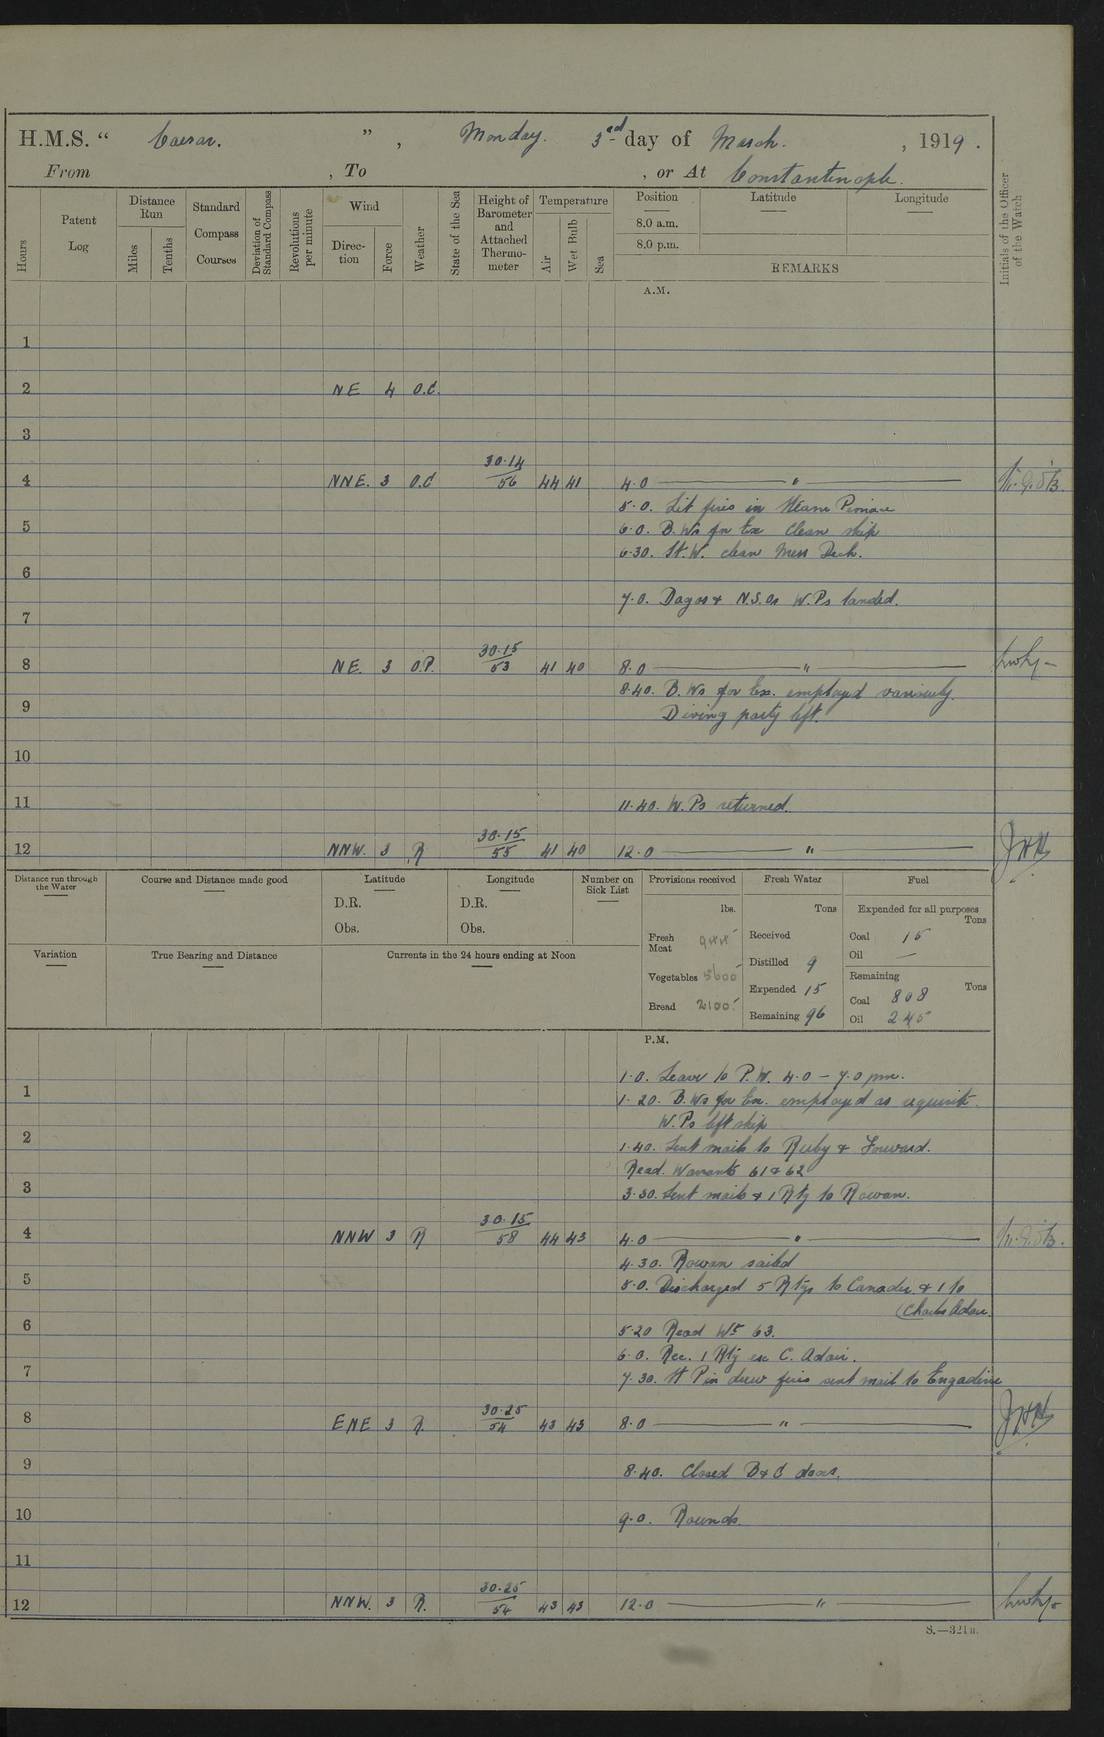 H.M.S. “ Caesar. ” , Monday. 3rd day of March. , 1919.
From , To , or At Constantinople.
Hours Patent Log Distance Run Miles Tenths Standard Compass Courses Deviation of Standard Compass Revolutions per minute Wind Direction Force Weather State of the Sea Height of Barometer and Attached Thermometer Temperature Air Wet Bulb Sea Position Latitude Longitude Initials of the Officer of the Watch
8.0 a.m.
8.0 p.m.
REMARKS
A.M.
1
2 NE 4 O.C.
3
4 NNE. 3 O.C 30.14 / 56 44 41 4.0 "
5.0. Lit fires in Steam Pinnace
5 6.0. B.Ws for Ex Clean ship
6.30. St.W. clean Mess Deck.
6
7.0. Dagos & N.S.Os W.Ps landed.
7
8 NE. 3 O.P. 30.15 / 53 41 40 8.0 "
8.40. B.Ws for Ex. employed variously.
9 Diving party left.
10
11 11.40. W.Ps returned.
12 NNW. 3 R 30.15 / 55 41 40 12.0 "
Distance run through the Water Course and Distance made good Latitude Longitude Number on Sick List Provisions received Fresh Water Fuel
D.R. D.R. lbs. Tons Expended for all purposes Tons
Obs. Obs. Fresh Meat Received Coal 15
Oil —
Variation True Bearing and Distance Currents in the 24 hours ending at Noon Vegetables 5600 Distilled 9 Remaining Tons
Expended 15 Coal 808
Bread 2100 Remaining 96 Oil 245
P.M.
1.0. Leave to P.W. 4.0 – 7.0 pm.
1 1.20. B.Ws for Ex. employed as requisite.
W.Ps left ship
2 1.40. Sent mails to Ruby & Forward.
Read. Warrants 61 & 62
3 3.30. Sent mails & 1 Rtg to Rowan.
4 NNW 3 R 30.15 / 58 44 43 4.0 "
4.30. Rowan sailed
5 5.0. Discharged 5 Rtgs to Canada & 1 to
(Charles Adair.
6 5.20 Read Wt 63.
6.0. Rec. 1 Rtg ex C. Adair.
7 7.30. St Pin drew fires sent mail to Engadine
8 ENE 3 R. 30.25 / 54 43 43 8.0 "
9 8.40. Closed B & C doors.
10 9.0. Rounds.
11
12 NNW. 3 R. 30.25 / 54 43 43 12.0 "
S.—321B.